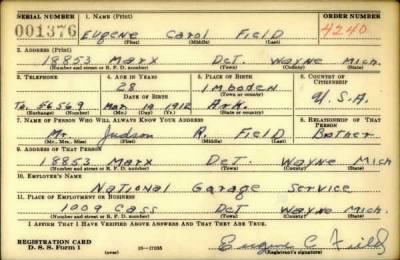 SERIAL NUMBER 1. NAME (Print) ORDER NUMBER
001376 Eugene Carol Field 4240
(First) (Middle) (Last)
2. ADDRESS (Print)
18853 Marx Det. Wayne Mich.
(Number and street or R. F. D. number) (Town) (County) (State)
3. TELEPHONE 4. AGE IN YEARS 5. PLACE OF BIRTH 6. COUNTRY OF CITIZENSHIP
28 Imboden
DATE OF BIRTH (Town or county)
To. 56569 Mar 19 1912 Ark. U.S.A.
(Exchange) (Number) (Mo.) (Day) (Yr.) (State or country)
7. NAME OF PERSON WHO WILL ALWAYS KNOW YOUR ADDRESS 8. RELATIONSHIP OF THAT PERSON
Mr Judson R. Field Brother
(Mr., Mrs., Miss) (First) (Middle) (Last)
9. ADDRESS OF THAT PERSON
18853 Marx Det. Wayne Mich
(Number and street or R. F. D. number) (Town) (County) (State)
10. EMPLOYER'S NAME
National Garage Service
11. PLACE OF EMPLOYMENT OR BUSINESS
1009 Cass Det. Wayne Mich.
(Number and street or R. F. D. number) (Town) (County) (State)
I AFFIRM THAT I HAVE VERIFIED ABOVE ANSWERS AND THAT THEY ARE TRUE.
REGISTRATION CARD
D. S. S. Form 1 (over) Eugene C Field
(Registrant's signature)